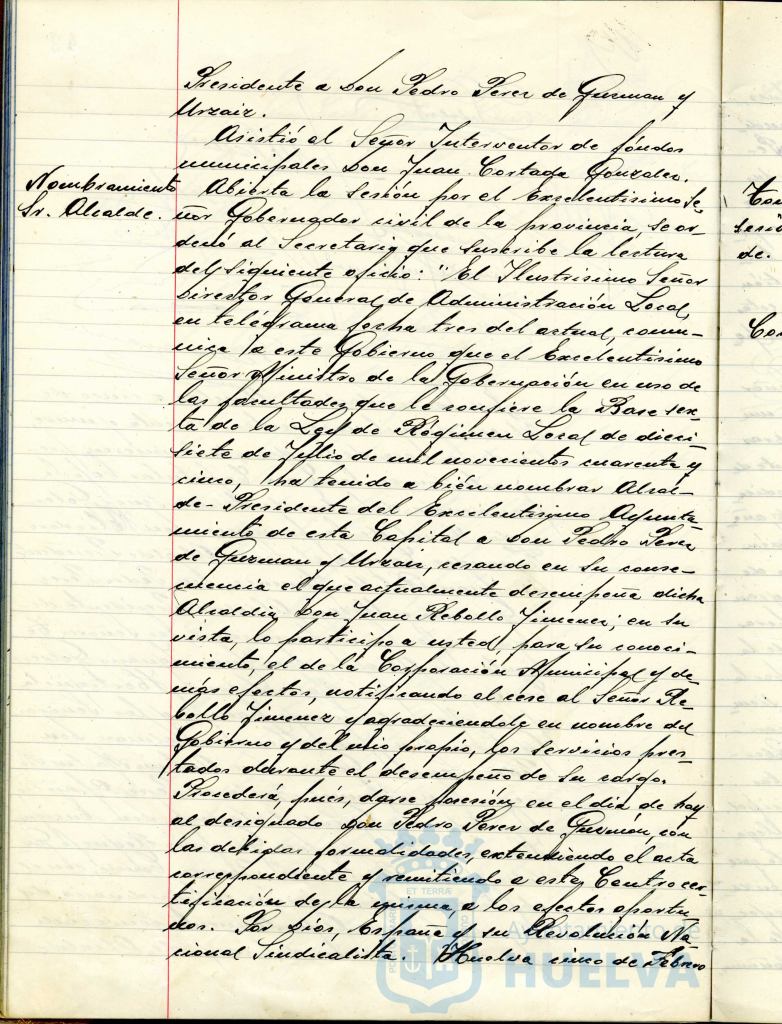 Presidente a Don Pedro Perez de Guzman y
Urzaiz.
Asistió el Señor Interventor de fondos
municipales Don Juan Cortaga Gonzalez.
Nombramiento
Sr. Alcalde.
Abierta la sesión por el Excelentisimo Se-
ñor Gobernador civil de la provincia, se or-
denó al Secretario que suscribe la lectura
del siguiente oficio: "El Ilustrisimo Señor
Director General de Administración Local,
en telegrama fecha tres del actual, comu-
nica a este Gobierno que el Excelentisimo
Señor Ministro de la Gobernación en uso de
las facultades que le confiere la Base sex-
ta de la Ley de Régimen Local de dieci-
siete de Julio de mil novecientos cuarenta y
cinco, ha tenido a bién nombrar Alcal-
de-Presidente del Excelentisimo Ayunta-
miento de esta Capital a Don Pedro Perez
de Guzman y Urzaiz, cesando en su conse-
cuencia el que actualmente desempeña dicha
Alcaldia Don Juan Rebollo Jimenez; en su
vista, lo participo a usted, para su conoci-
miento, el de la Corporación Municipal y de-
más efectos, notificando el cese al Señor Re-
bollo Jimenez y agradeciendole en nombre del
Gobierno y del mio propio, los servicios pres-
tados durante el desempeño de su cargo.
Procederá, pués, darse posesión en el dia de hoy
al designado Don Pedro Perez de Guzmán, con
las debidas formalidades, extendiendo el acta
correspondiente y remitiendo a este Centro cer-
tificación de la misma, a los efectos oportu-
nos. Por Dios, España y su Revolución Na-
cional Sindicalista. Huelva cinco de Febrero
ET TERRÆ
Ayuntamiento de
HUELVA